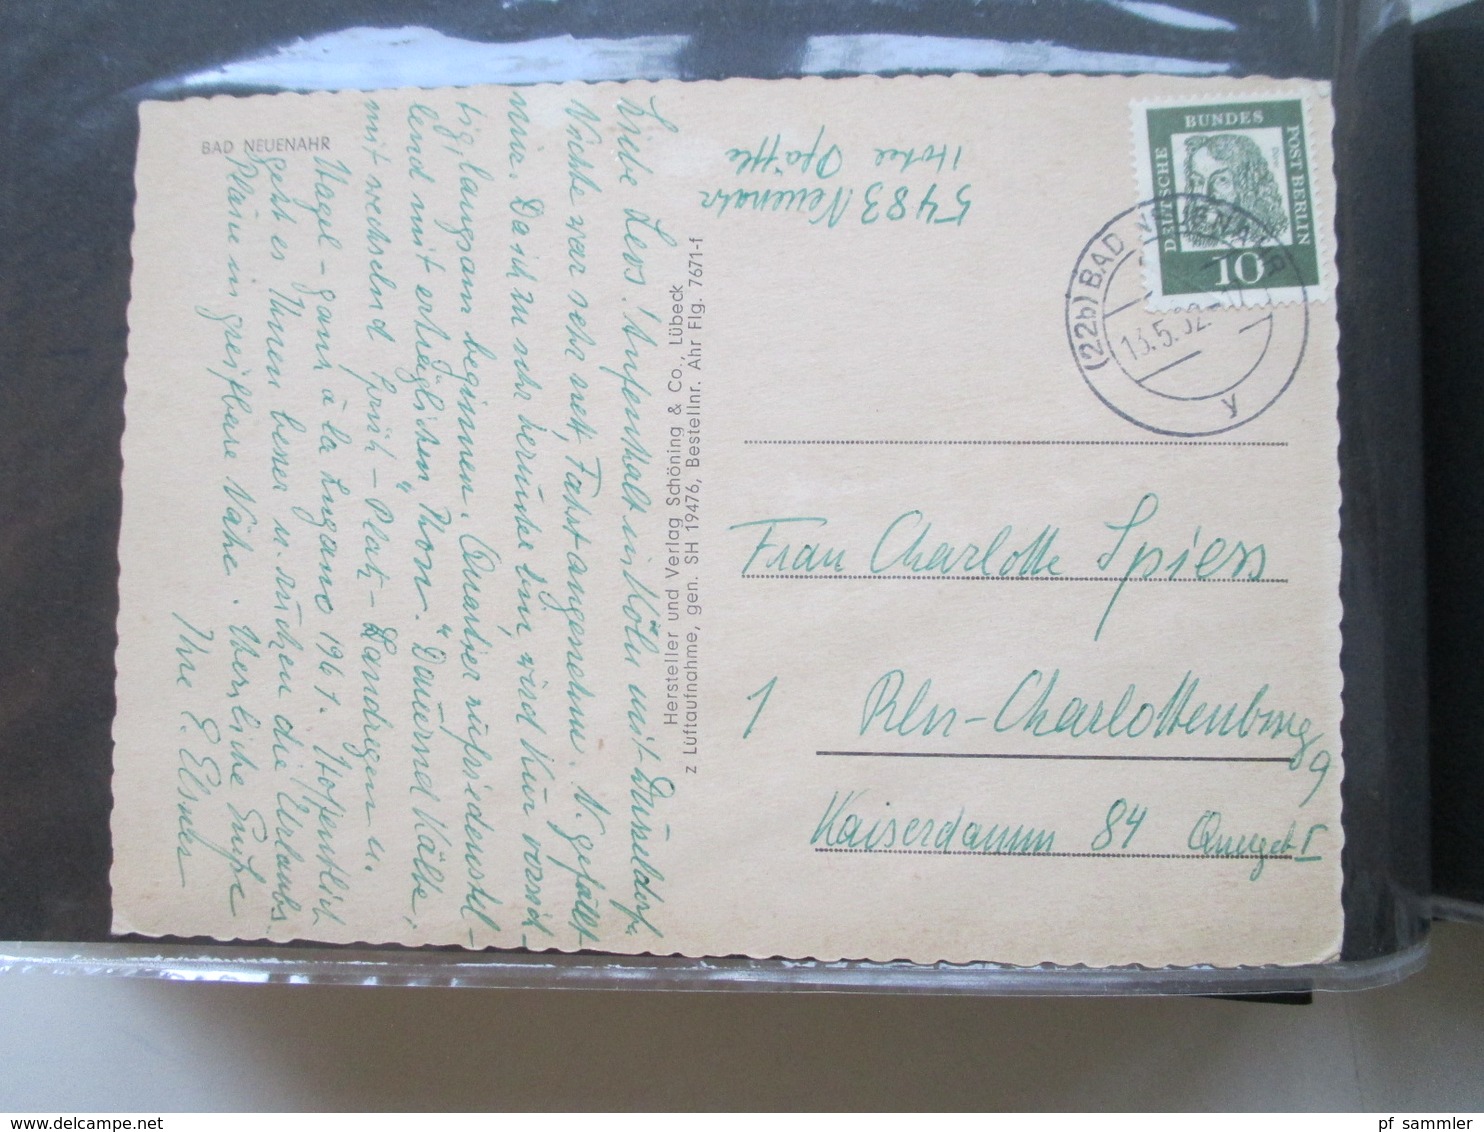 BAD NEUENAHR
Liebe Levs! Aufenthalt in Köln mit Düsseldorf
Nichte war sehr nett, Fahrt angenehm. N. gefällt
mir. Da ich zu sehr herunter bin, wird Kur vorsich-
tig, langsam beginnen. Quartier zufriedenstel-
lend mit erträglichen Kosten. Dauernd Kälte,
mit wechselnd Grün - Platz - Landregen u.
Hagel - ganz à la Lugano 1961. Hoffentlich
geht es Ihnen besser u. rücken die Urlaubs-
Pläne in greifbare Nähe. Herzliche Grüße
Ihre E. Elsner
Hersteller und Verlag Schöning & Co., Lübeck
z Luftaufnahme, gen. SH 19476, Bestellnr. Ahr Flg. 7671-f
5483 Neuenahr
Hotel
DEUTSCHE BUNDESPOST BERLIN
10
(22b) BAD NEUENAHR
13.5.62
y
Frau Charlotte Spiess
1 Bln-Charlottenburg 9
Kaiserdamm 84 Quergeb I
pf_sammler